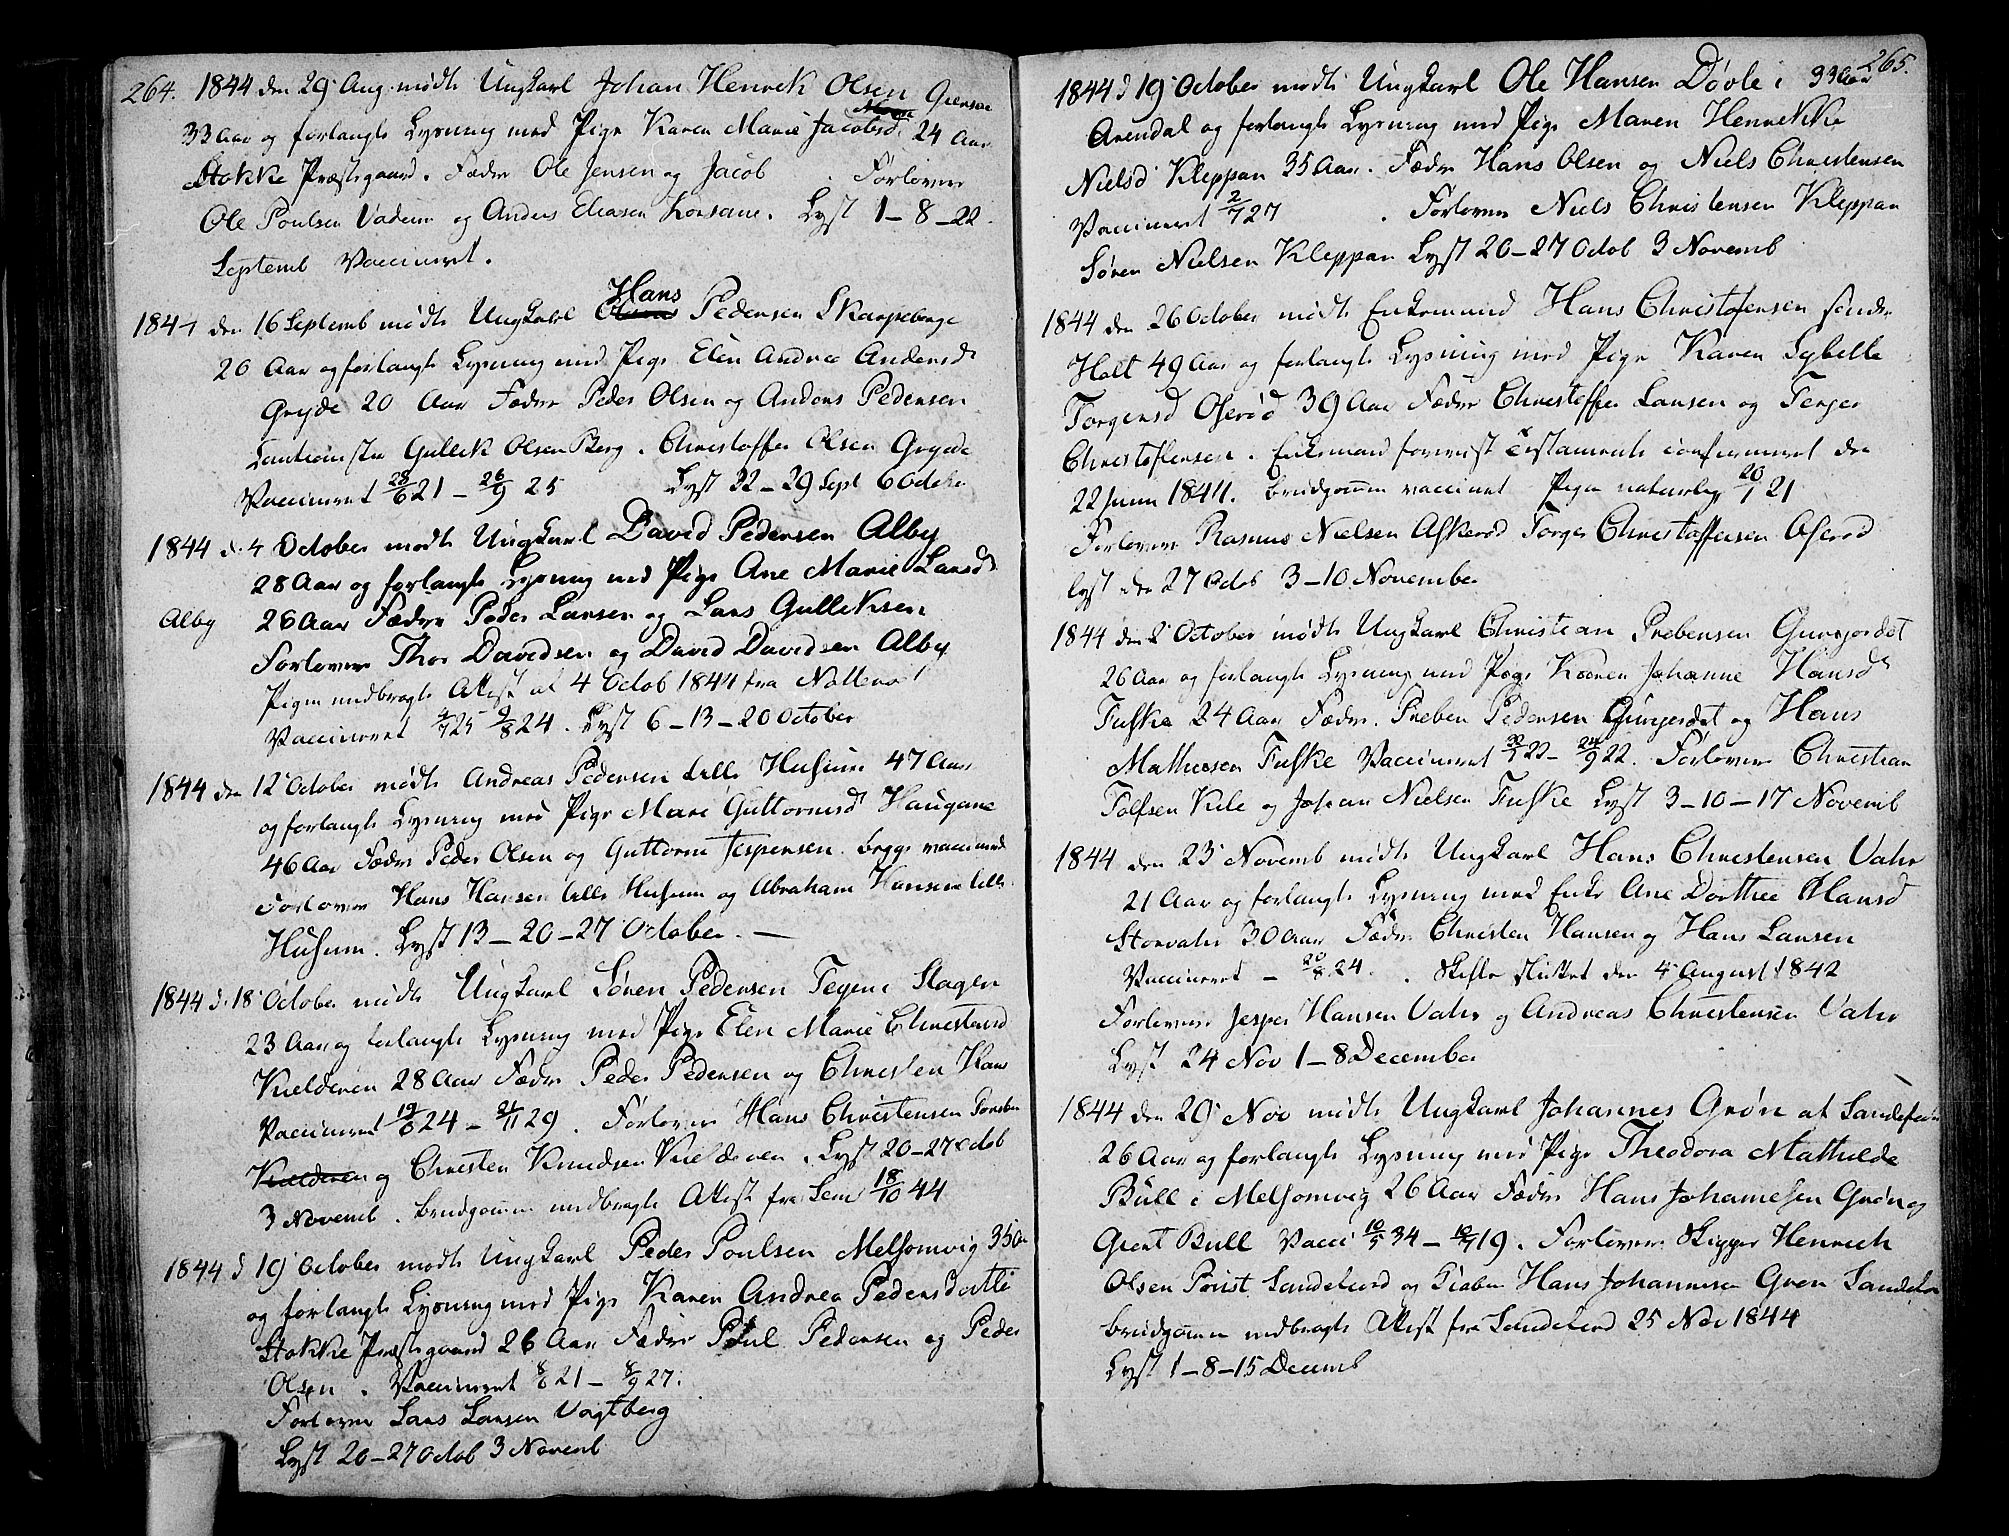 264. 1844 den 29 Aug. mødte Ungkarl Johan Henrek Olsen
33 Aar og forlangte Lysning med Pige Karen Marie Jacobsd. 24 Aar
Stokke Præstegaard. Fædre Ole Jensen og Jacob . Forlovere
Ole Poulsen Vadum og Anders Eliasen . Lyst 1 – 8 – 22
Septemb Vaccineret.
Hans
1844 den 16 Septemb mødte Ungkarl Pedersen Skarpeberge
26 Aar og forlangte Lysning med Pige Elen Andrea Andersd
Gryde 20 Aar Fædre Peder Olsen og Anders Pedersen
Cautionister Gullek Olsen Berg. Christoffer Olsen Gryde
Vaccineret 21 – 26/9 25 Lyst 22 – 29 Sept 6 Octobr
1844 d. 4 October mødte Ungkarl David Pedersen Alby
28 Aar og forlangte Lysning med Pige Ane Marie Larsd
Alby 26 Aar Fædre Peder Larsen og Lars Gulleksen
Forlovere Thor Davidsen og David Davidsen Alby
Pigen medbragte Attest af 4 Octob 1844 fra Nøtterøe
Vaccineret 25 9/8 24. Lyst 6 – 13 – 20 October
1844 den 12 October mødte Andreas Pedersen lille Husum 47 Aar
og forlangte Lysning med Pige Mari Guttormsd Haugane
46 Aar Fædre Peder Olsen og Guttorm Jespersen. begge vaccineret
Forlovere Hans Hansen lille Husum og Abraham Hansen lille
Husum. Lyst 13 – 20 – 27 October. —
1844 d. 18 October mødte Ungkarl Søren Pedersen Tegen i Slagen
23 Aar og forlangte Lysning med Pige Elen Marie Christensd
Kielderen 28 Aar Fædre Peder Pedersen og Christen Hans
Vaccineret 19/6 24 – 21/11 29. Forlovere Hans Christensen
Kielderen og Christen Knudsen Kielderen. Lyst 20 – 27 Octob
3 Novemb. Brudgommen medbragte Attest fra Sem 18/10 44
1844 d 19 October mødte Ungkarl Peder Poulsen Melsomvig 35 Aar
og forlangte Lysning med Pige Karen Andrea Pedersdatter
Stokke Præstegaard 26 Aar Fædre Poul Pedersen og Peder
Olsen. Vaccineret 8/6 21 – 8/9 27.
Forlover Lars Larsen Vagtberg
Lyst 20 – 27 Octob 3 Novemb
265.
1844 d 19 October mødte Ungkarl Ole Hansen Døvle i 33 Aar
Arendal og forlangte Lysning med Pige Maren Henrekke
Nielsd Kleppan 35 Aar. Fædre Hans Olsen og Niels Christensen
Vaccineret 2/7 27 . Forlovere Niels Christensen Kleppan
Søren Nielsen Kleppan Lyst 20 – 27 Octob 3 Novemb
1844 den 26 October mødte Enkemand Hans Christofersen søndre
Holt 49 Aar og forlangte Lysning med Pige Karen Sybelle
Torgersd Oserød 39 Aar Fædre Christoffer Larsen og Terger
Christoffersen. Enkemand foreviist Testamente confirmeret den
22 Juni 1844. Brudgommen vaccineret Pigen naturlig 20/1 21
Forlovere Rasmus Nielsen Askerød Torger Christoffersen Oserød
Lyst den 27 Octob 3 – 10 November
1844 den October mødte Ungkarl Christian Prebensen Gursjordet
26 Aar og forlangte Lysning med Pige Karen Johanne Hansd
Fuske 24 Aar Fædre. Preben Pedersen Gursjordet og Hans
Mathiesen Fuske Vaccineret 22 – 24/9 22. Forlovere Christian
Tolfsen Kile og Johan Nielsen Fuske Lyst 3 – 10 – 17 Novemb
1844 den 23 Novemb mødte Ungkarl Hans Christensen Valø
21 Aar og forlangte Lysning med Enke Ane Dorthee Hansd
Storvalø 30 Aar Fædre Christen Hansen og Hans Larsen
Vaccineret – 20/8 24. . Skifte sluttet den 4 August 1842
Forlovere Jesper Hansen Valø og Andreas Christensen Valø
Lyst 24 Nov 1 – 8 December
1844 den 29 Nov mødte Ungkarl Johannes Grøn af Sandefiord
26 Aar og forlangte Lysning med Pige Theodora Mathilde
Bull i Melsomvig 26 Aar Fædre Hans Johannesen Grøn og
Giert Bull Vacci 10/5 34 – 19. Forlovere Skipper Henrich
Olsen Sandefiord og Hans Johannesen Grøn Sandefior
Brudgommen medbragte Attest fra Sandefiord 25 Nov 1844
Lyst 1 – 8 – 15 Decemb